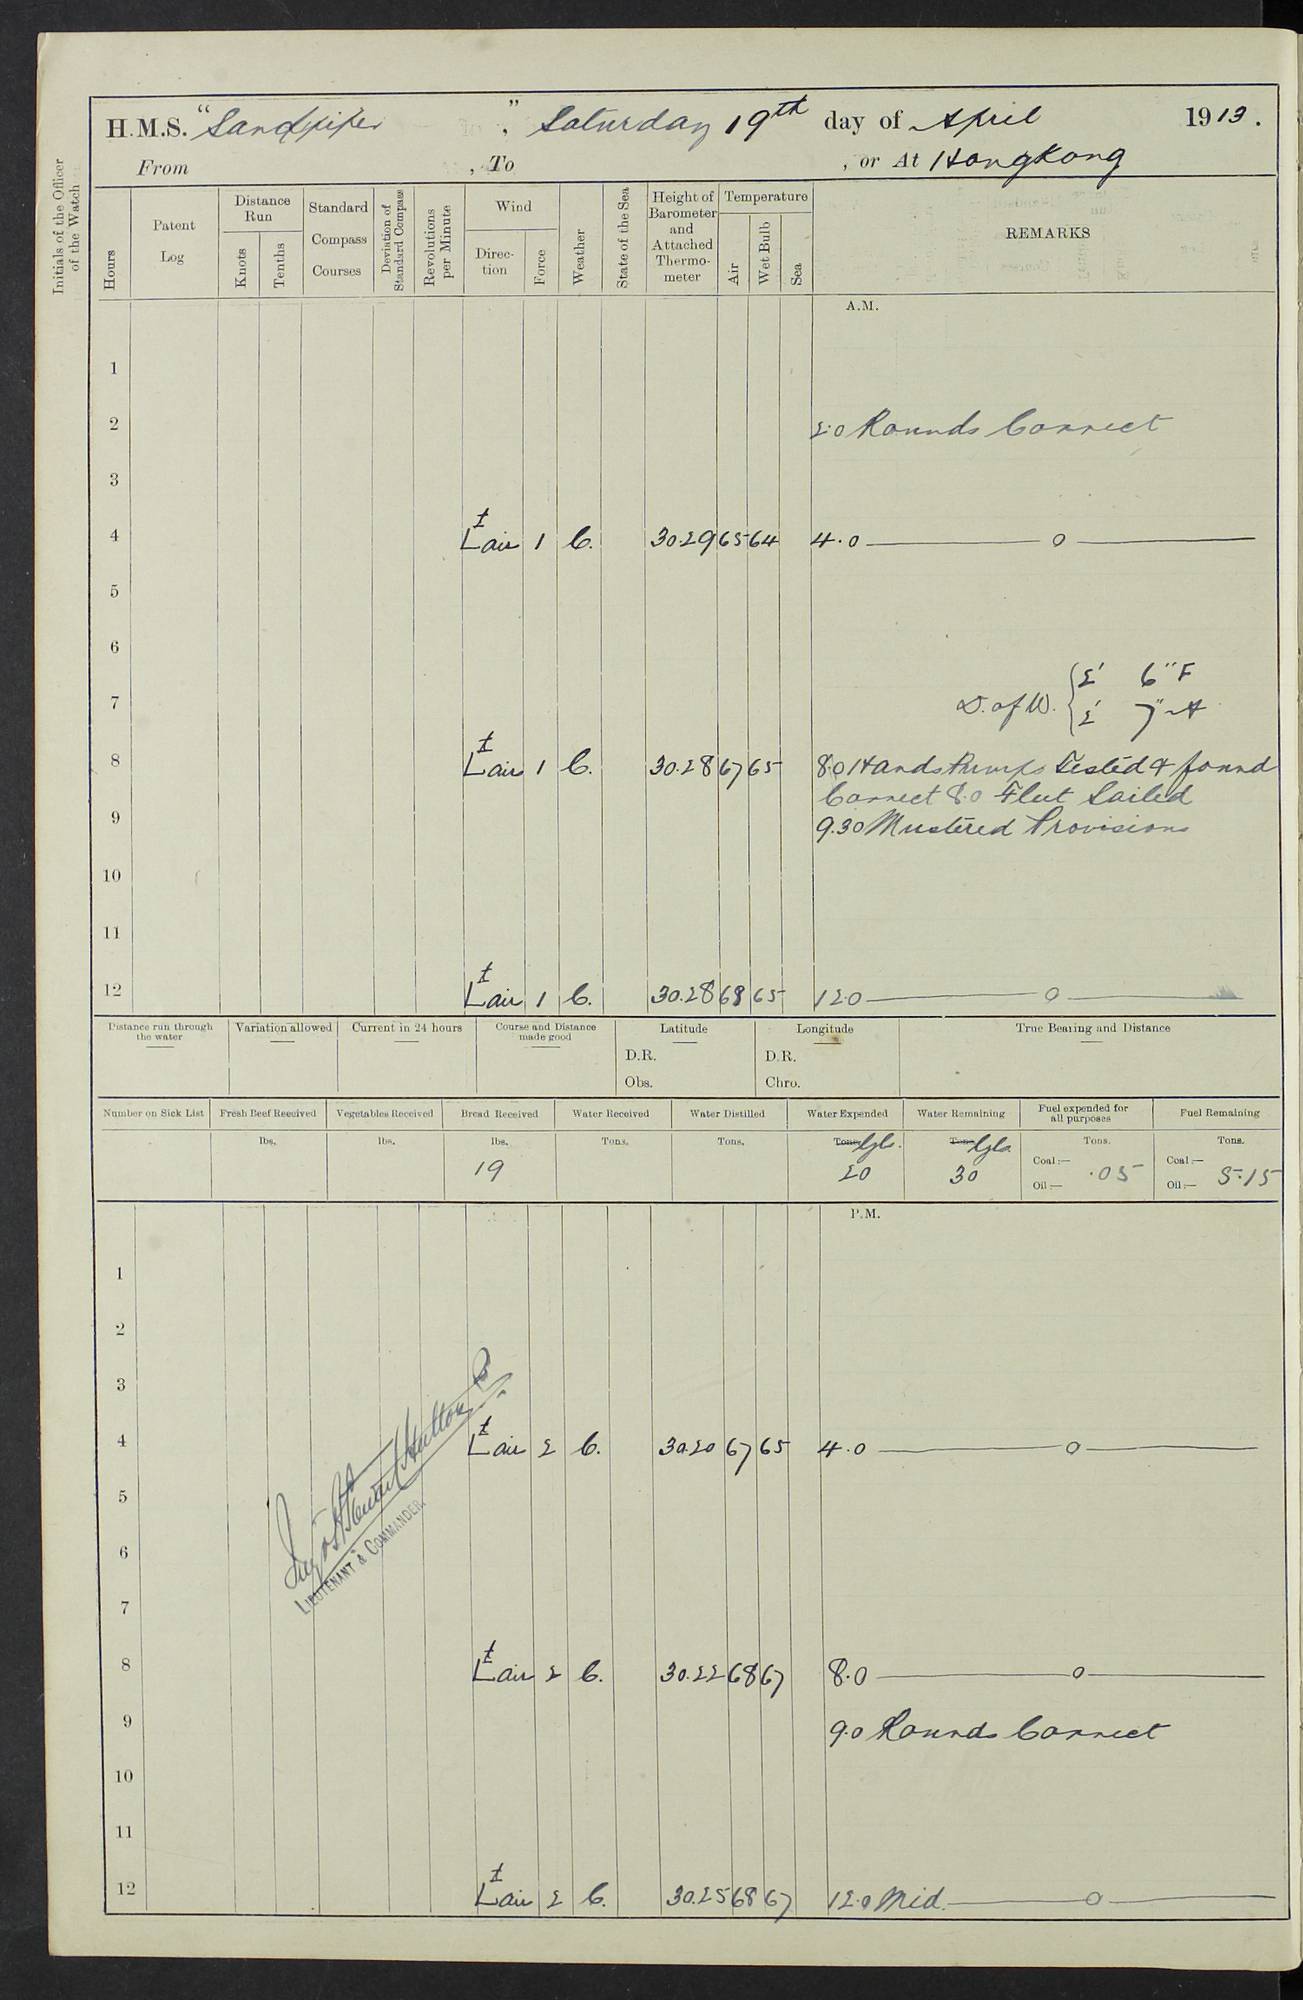 H.M.S. "Sandpiper", Saturday 19th day of April 1913.
From , To , or At Hongkong
Initials of the Officer of the Watch
Hours
Patent Log
Distance Run
Knots
Tenths
Standard Compass Courses
Deviation of Standard Compass
Revolutions per Minute
Wind
Direction
Force
Weather
State of the Sea
Height of Barometer and Attached Thermometer
Temperature
Air
Wet Bulb
Sea
REMARKS
A.M.
1
2 2.0 Rounds Correct
3
4 Lt air 1 C. 30.29 65 64 4.0 — o —
5
6
D. of W. { 2' 6" F
7 2' 7" A
8 Lt air 1 C. 30.28 67 65 8.0 Hands Pumps Tested & found
Correct 8.0 Fleet Sailed
9 9.30 Mustered Provisions
10
11
12 Lt air 1 C. 30.28 68 65 12.0 — o —
Distance run through the water
Variation allowed
Current in 24 hours
Course and Distance made good
Latitude
D.R.
Obs.
Longitude
D.R.
Chro.
True Bearing and Distance
Number on Sick List
Fresh Beef Received
Vegetables Received
Bread Received
Water Received
Water Distilled
Water Expended
Water Remaining
Fuel expended for all purposes
Fuel Remaining
lbs. lbs. lbs. Tons. Tons. Tons. Gls. Tons. Gls. Tons. Tons.
19 20 30 Coal:— Oil:— .05 Coal:— Oil:— 5.15
P.M.
1
2
3
4 Lt air 2 C. 30.20 67 65 4.0 — o —
5
6
LIEUTENANT & COMMANDER.
7
8 Lt air 2 C. 30.22 68 67 8.0 — o —
9 9.0 Rounds Correct
10
11
12 Lt air 2 C. 30.25 68 67 12.0 Mid. — o —